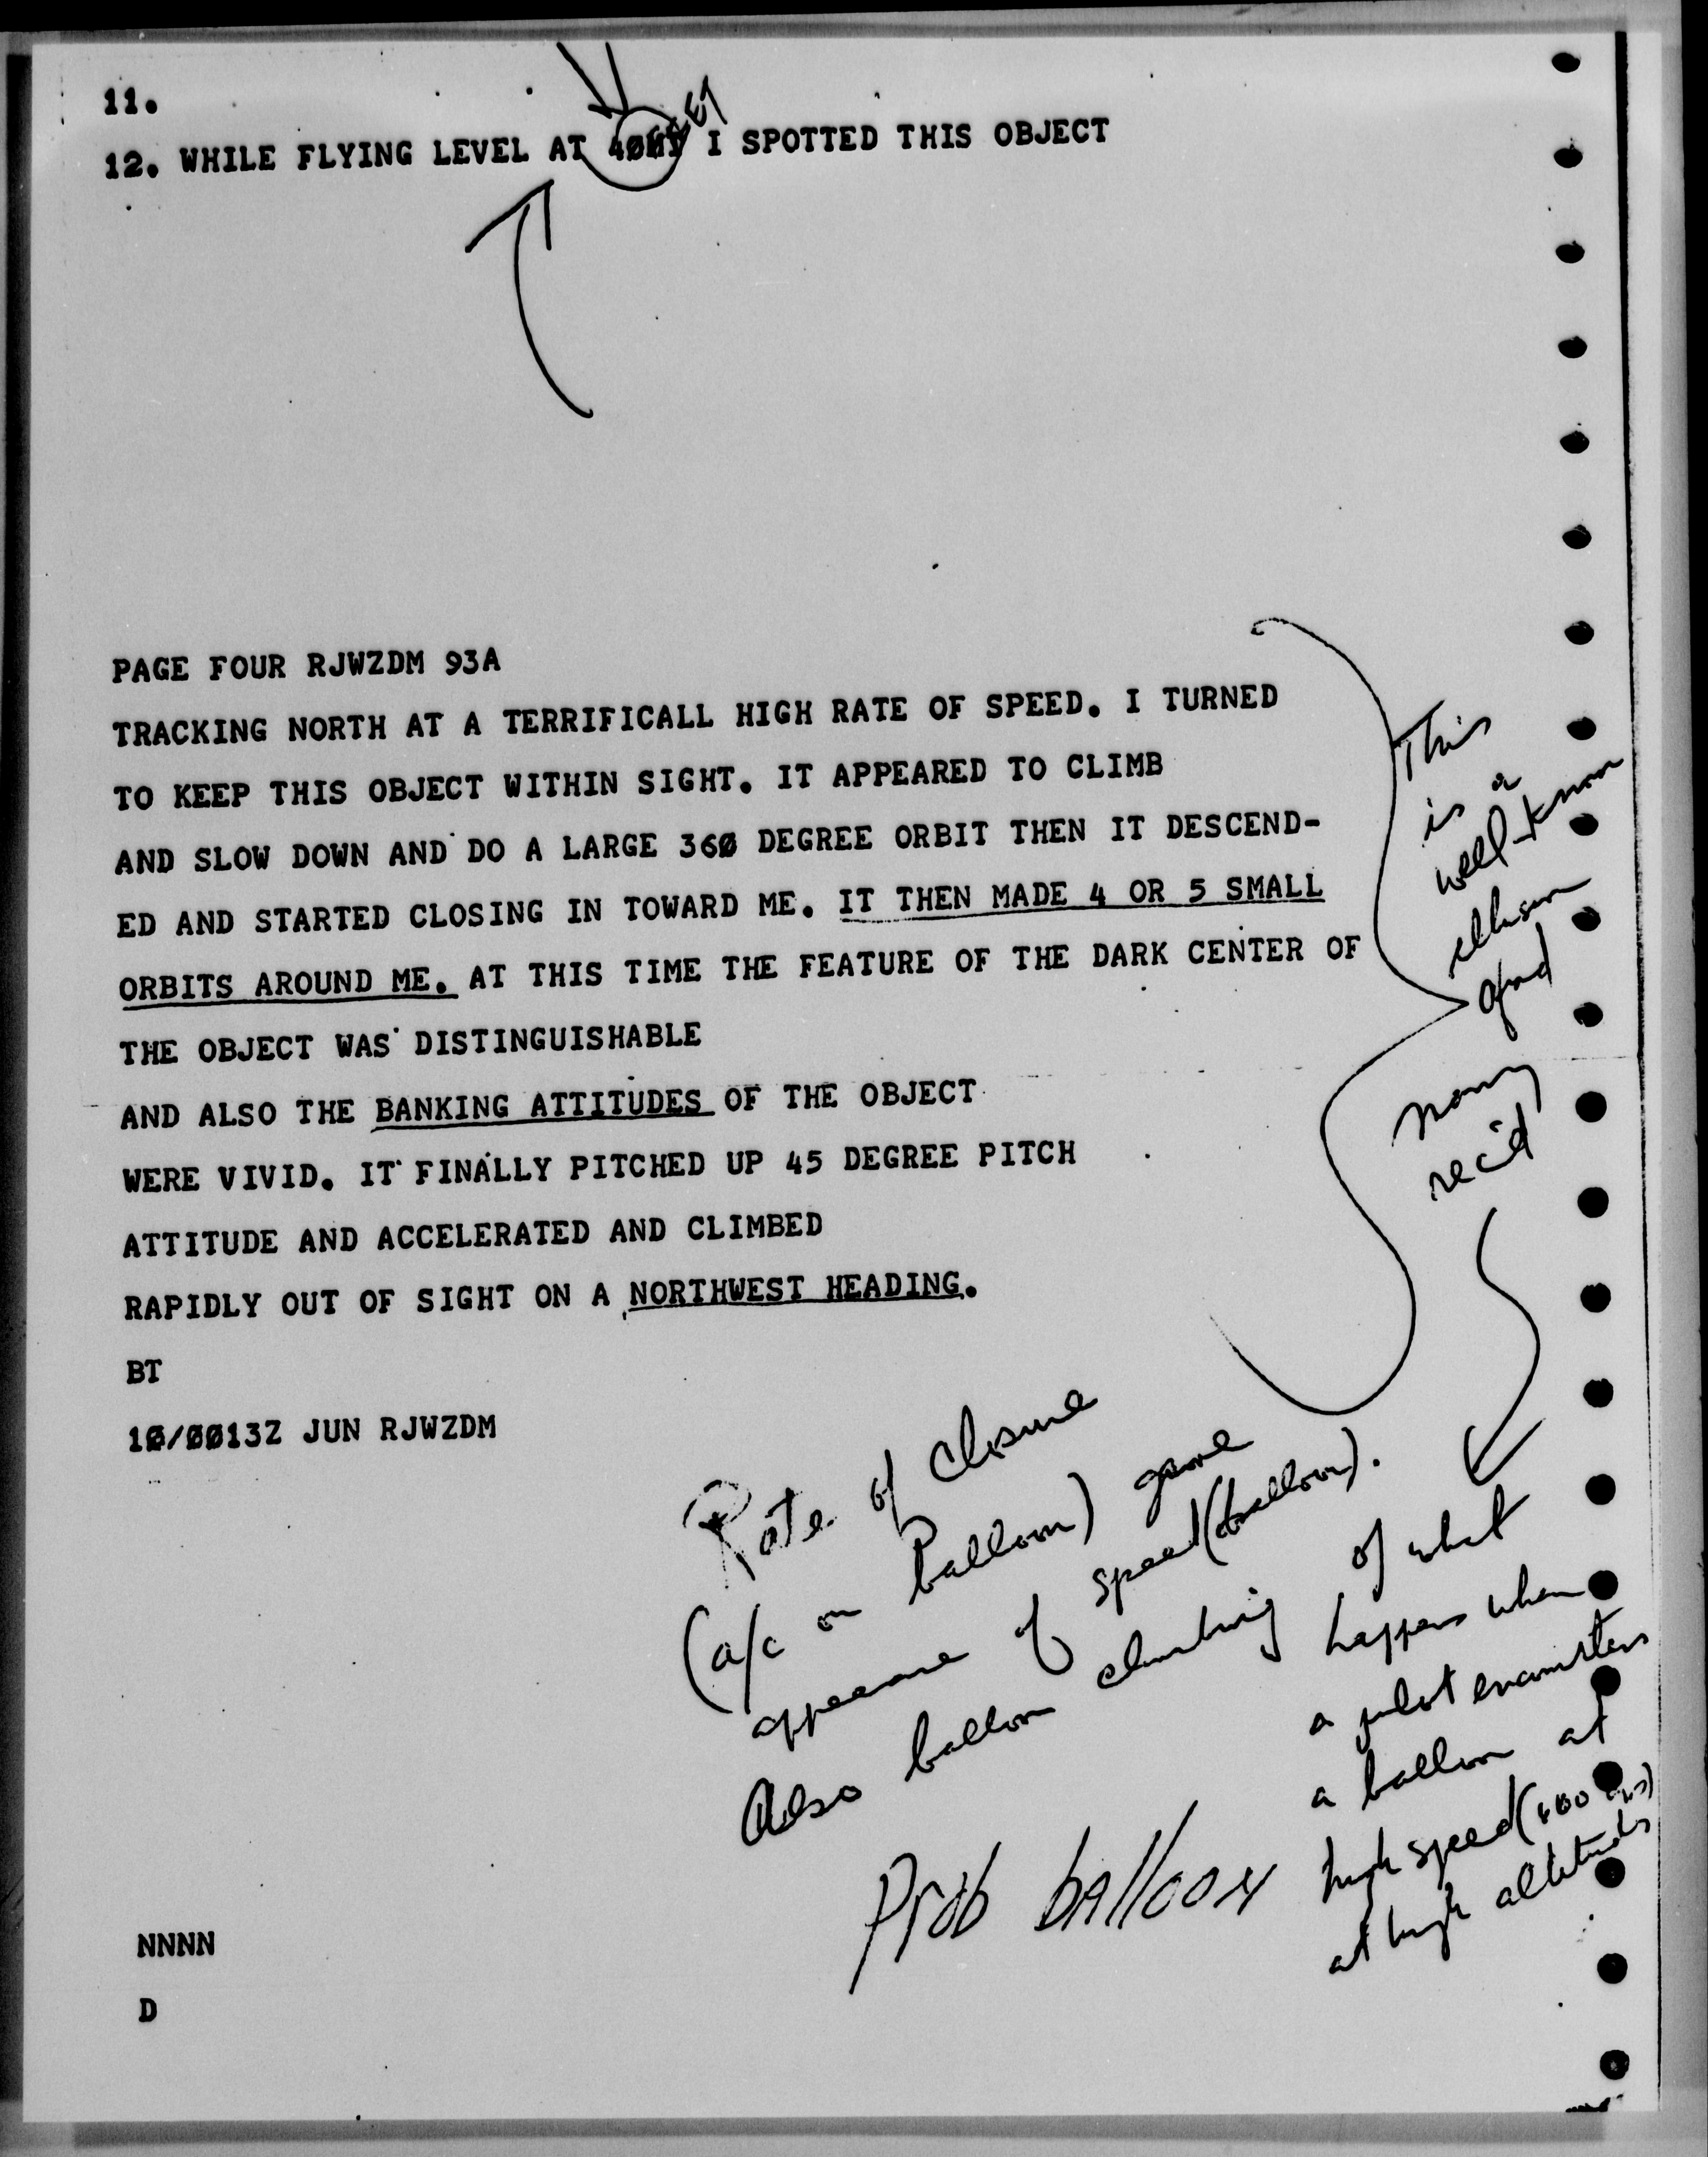 11.
12. WHILE FLYING LEVEL AT I SPOTTED THIS OBJECT
PAGE FOUR RJWZDM 93A
TRACKING NORTH AT A TERRIFICALL HIGH RATE OF SPEED. I TURNED
TO KEEP THIS OBJECT WITHIN SIGHT. IT APPEARED TO CLIMB
AND SLOW DOWN AND DO A LARGE 360 DEGREE ORBIT THEN IT DESCEND-
ED AND STARTED CLOSING IN TOWARD ME. IT THEN MADE 4 OR 5 SMALL
ORBITS AROUND ME. AT THIS TIME THE FEATURE OF THE DARK CENTER OF
THE OBJECT WAS DISTINGUISHABLE
AND ALSO THE BANKING ATTITUDES OF THE OBJECT
WERE VIVID. IT FINALLY PITCHED UP 45 DEGREE PITCH
ATTITUDE AND ACCELERATED AND CLIMBED
RAPIDLY OUT OF SIGHT ON A NORTHWEST HEADING.
BT
10/0013Z JUN RJWZDM
This
is a
well-known
illusion
and
many
rec'd
of what
happens when
a pilot encounters
a balloon at
high speed
at high altitudes
Rate of closure
(a/c on balloon) gave
appearance of speed (balloon).
Also balloon climbing
Prob balloon
NNNN
D